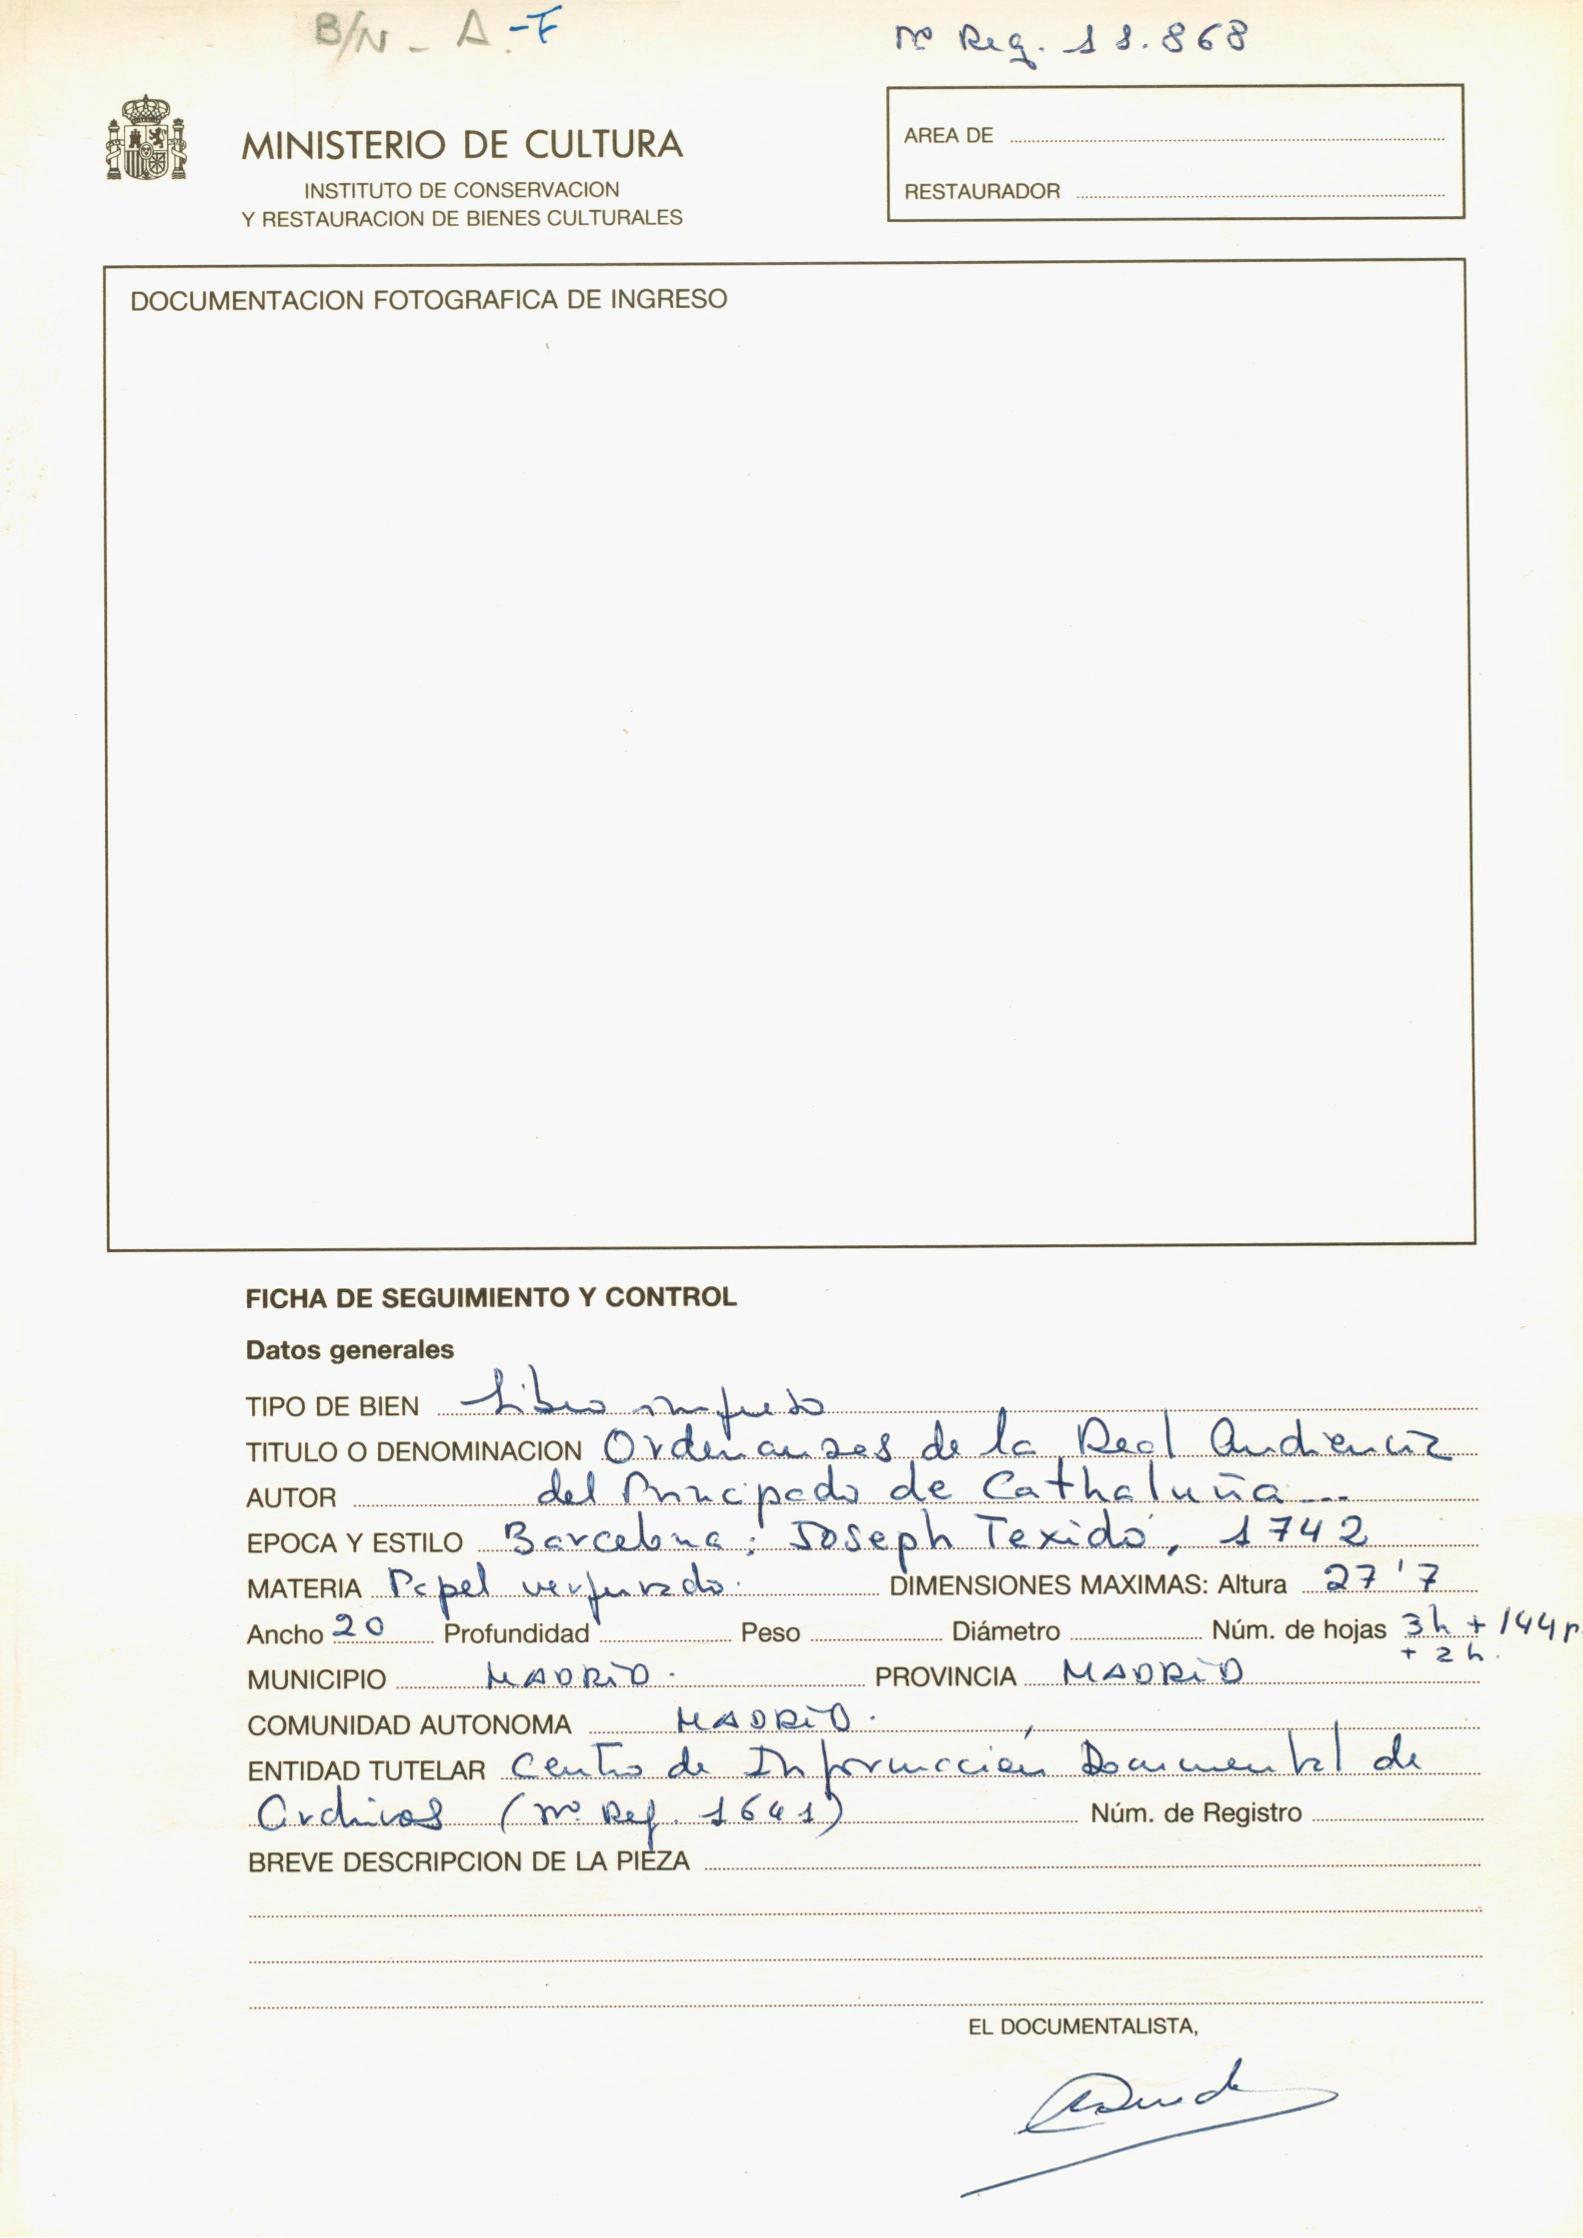 B/N - A - F
Nº Reg. 11.868
MINISTERIO DE CULTURA
INSTITUTO DE CONSERVACION
Y RESTAURACION DE BIENES CULTURALES
AREA DE
RESTAURADOR
DOCUMENTACION FOTOGRAFICA DE INGRESO
FICHA DE SEGUIMIENTO Y CONTROL
Datos generales
TIPO DE BIEN Libro impreso
TITULO O DENOMINACION Ordenanzas de la Real Audiencia
AUTOR del Principado de Cathaluña...
EPOCA Y ESTILO Barcelona: Joseph Texidó, 1742
MATERIA Papel verjurado. DIMENSIONES MAXIMAS: Altura 27'7
Ancho 20 Profundidad Peso Diámetro Núm. de hojas 3h + 144p
+ 2 h.
MUNICIPIO MADRID. PROVINCIA MADRID
COMUNIDAD AUTONOMA MADRID.
ENTIDAD TUTELAR Centro de Información Documental de
Archivos (Nº Reg. 1641) Núm. de Registro
BREVE DESCRIPCION DE LA PIEZA
EL DOCUMENTALISTA,